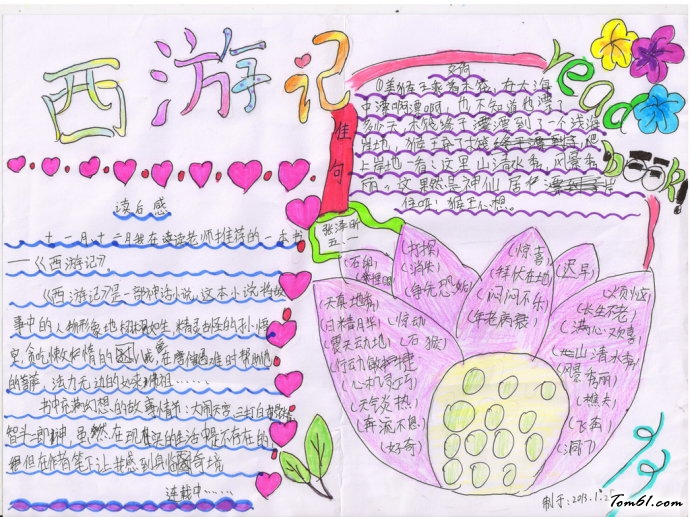 西游记
读后感
十一月、十二月我在读老师推荐的一本书
——《西游记》。
《西游记》是一部神话小说,这本小说将故
事中的人物形象地栩栩如生,精灵古怪的孙悟
空,贪吃懒
的菩萨,法力无边的如来佛祖……
书中充满幻想的故事情节:大闹天宫、三打白骨精
智斗二郎神,虽然在现实的生活中是不存在的
但在作者笔下让我感到身临其境
连载中……
佳句
文句
①美猴王乘着木筏,在大海
中漂啊漂啊,也不知道他漂了
多少天,木筏终于漂漂到了一个浅海
岸地,猴王
上岸地一看:这里山清水秀,风景秀
丽。“这里果然是神仙居
住啦!”猴王心想。
read
book!
五.一
(石卵)
(打探)
(消失)
(争先恐后)
(惊喜)
(拜伏在地)
(闷闷不乐)
(年老病衰)
(迟早)
(烦恼)
(长生不老)
(满心欢喜)
(山清水秀)
(风景秀丽)
(樵夫)
(飞奔)
(洞门)
(天真地秀)
(日精月华)
(惊动)
(震天动地)
(石猴)
(行动敏捷)
(心机灵巧)
(天气炎热)
(奔流不息)
(好奇)
制于:2013.1.2
Tom61.com